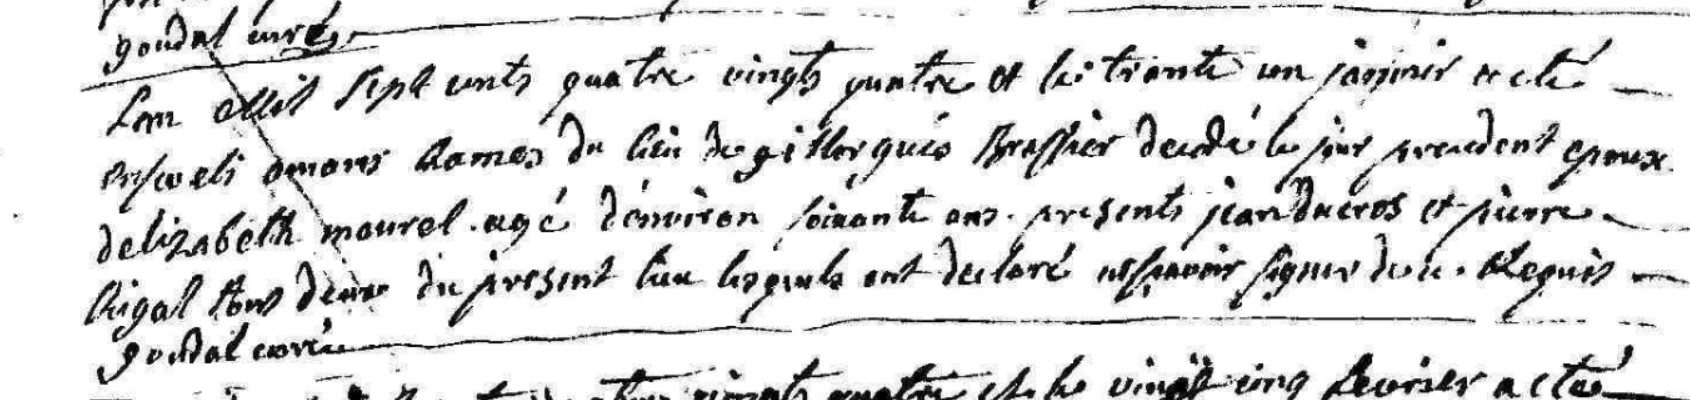 goudal curé
Lan Mil sept cents quatre vingts quatre et le trante un janvier a eté
enseveli amans Ramès du lieu de gillorgués Brassier decedé le jour precedent epoux
delizabeth mourel agé d'environ soixante ans. presents jean Ducros et pierre
Rigal tous deux du present lieu lesquels ont declaré ne sçavoir signer de ce Requis
goudal curé
quatre vingts quatre et le vingt cinq fevrier a eté